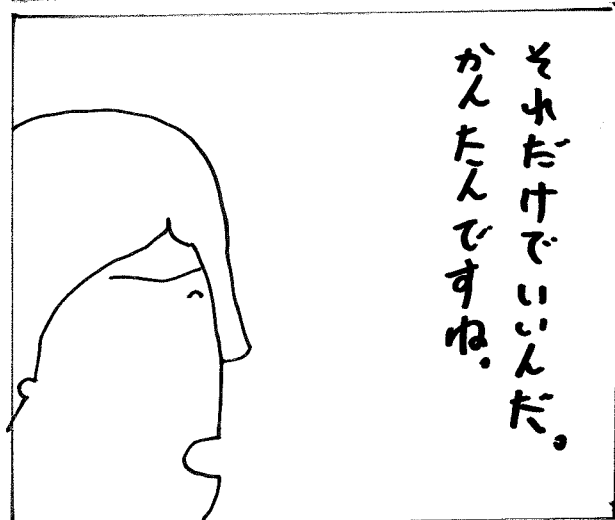 それだけでいいんだ。
かんたんですね。